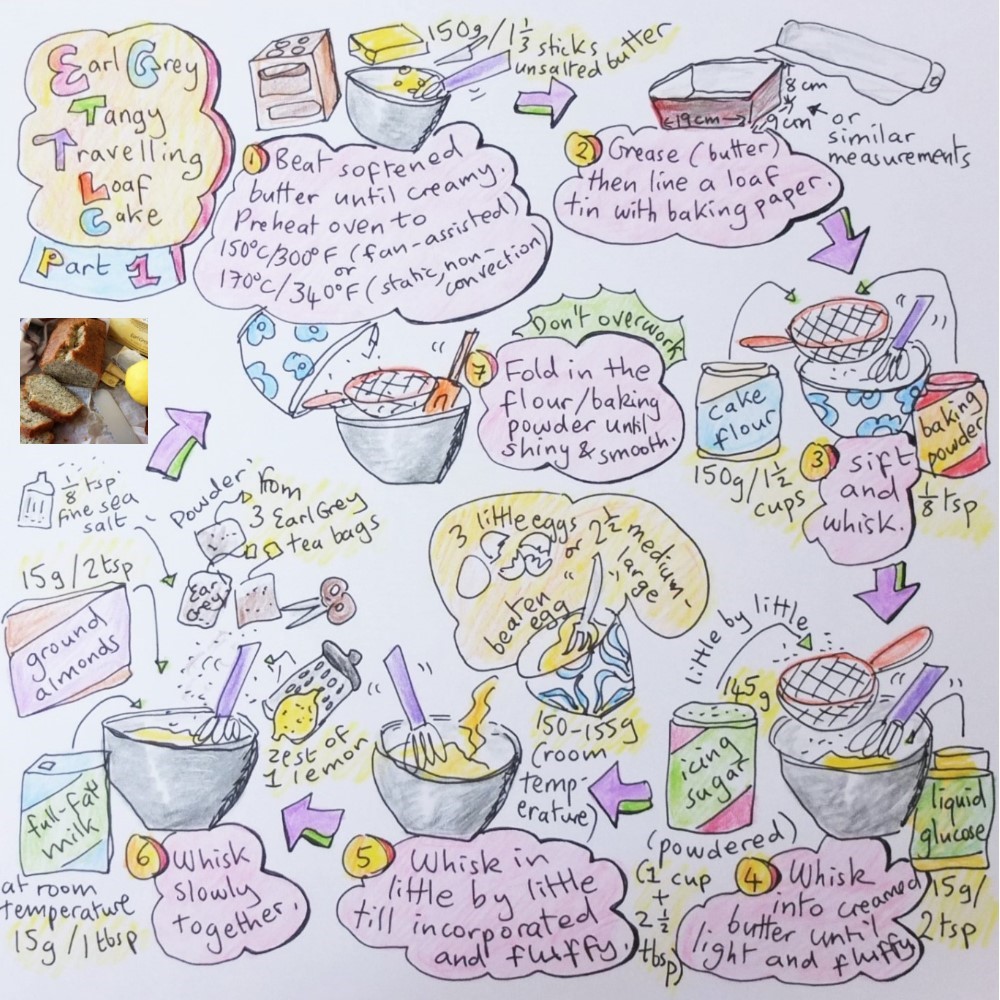 Earl Grey
Tangy
Travelling
Loaf
Cake
Part 1
150g/1 1/3 sticks
unsalted butter
1 Beat softened
butter until creamy.
Preheat oven to
150°C/300°F (fan-assisted)
or
170°C/340°F (static, non-
convection
8cm
19cm
9cm
or
similar
measurements
2 Grease (butter)
then line a loaf
tin with baking paper.
cake
flour
150g/1 1/2
cups
baking
powder
1/8 tsp
3 sift
and
whisk.
little by little
145g
icing
sugar
(powdered)
(1 cup
+
2 1/2
tbsp)
liquid
glucose
15g/
2 tsp
4 Whisk
into creamed
butter until
light and fluffy
3 little eggs
or 2 1/2 medium-
large
beaten
egg
150-155g
(room
temp-
erature)
5 Whisk in
little by little
till incorporated
and fluffy.
1/8 tsp
fine sea
salt
Powder from
3 Earl Grey
tea bags
Earl
Grey
15g/2tsp
ground
almonds
zest of
1 lemon
full-fat
milk
at room
temperature
15g/1 tbsp
6 Whisk
slowly
together.
Don't overwork
7 Fold in the
flour/baking
powder until
shiny & smooth.